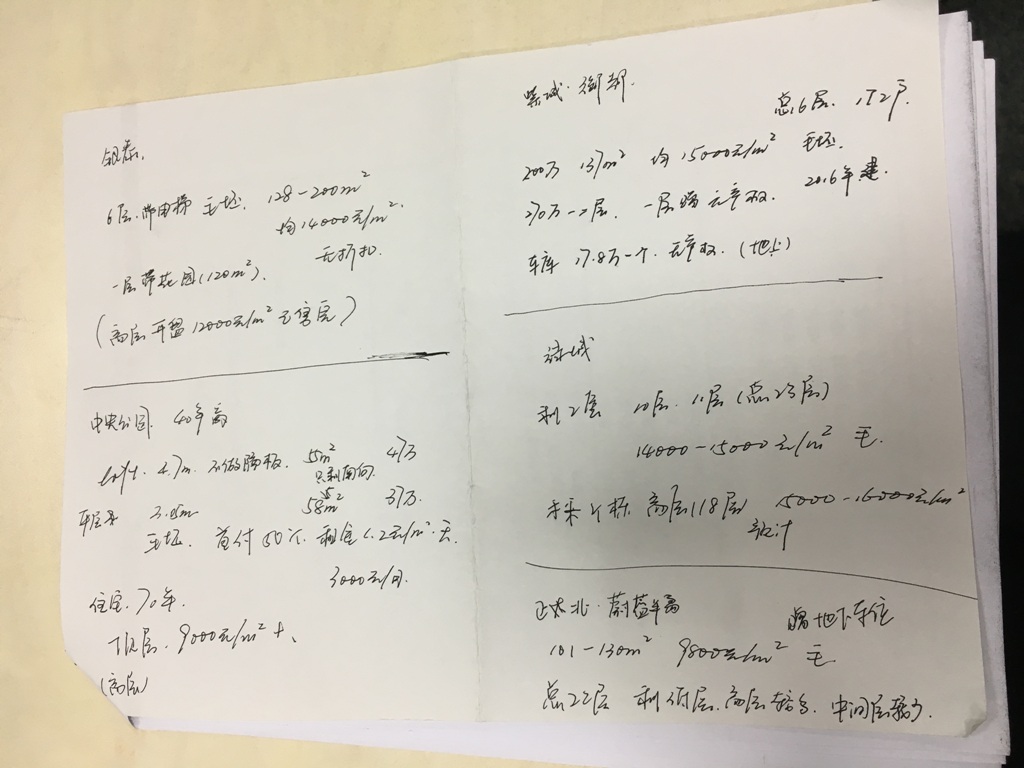 银泰.
6层.带电梯 毛坯. 128-200m²
均14000元/m².
无折扣.
一层带花园(120m²).
(高层 开盘 12000元/m² 已售完)
中央公园. 40年产
Loft. 4.7m. 不做隔板. 55m² 47万
只剩南向
平层 3.15m 58m² 37万.
毛坯. 首付50% 租金1.2元/m²·天.
3000元/月.
住宅. 70年.
顶层. 9000元/m²+.
(高层)
紫城·御都.
总6层. 1T2户.
200万 137m² 均15000元/m² 毛坯.
270万一二层. 一层赠 无产权. 2016年建.
车库 17.8万一个. 无产权. (地上)
绿城
剩2层 10层. 11层(总23层)
14000-15000元/m² 毛.
未来 栋 高层118层 15000-16000元/m²
预计
正大北·蔚蓝 赠地下车位
101-130m² 9800元/m² 毛
总22层 剩 层. 高层较多. 中间层较少.